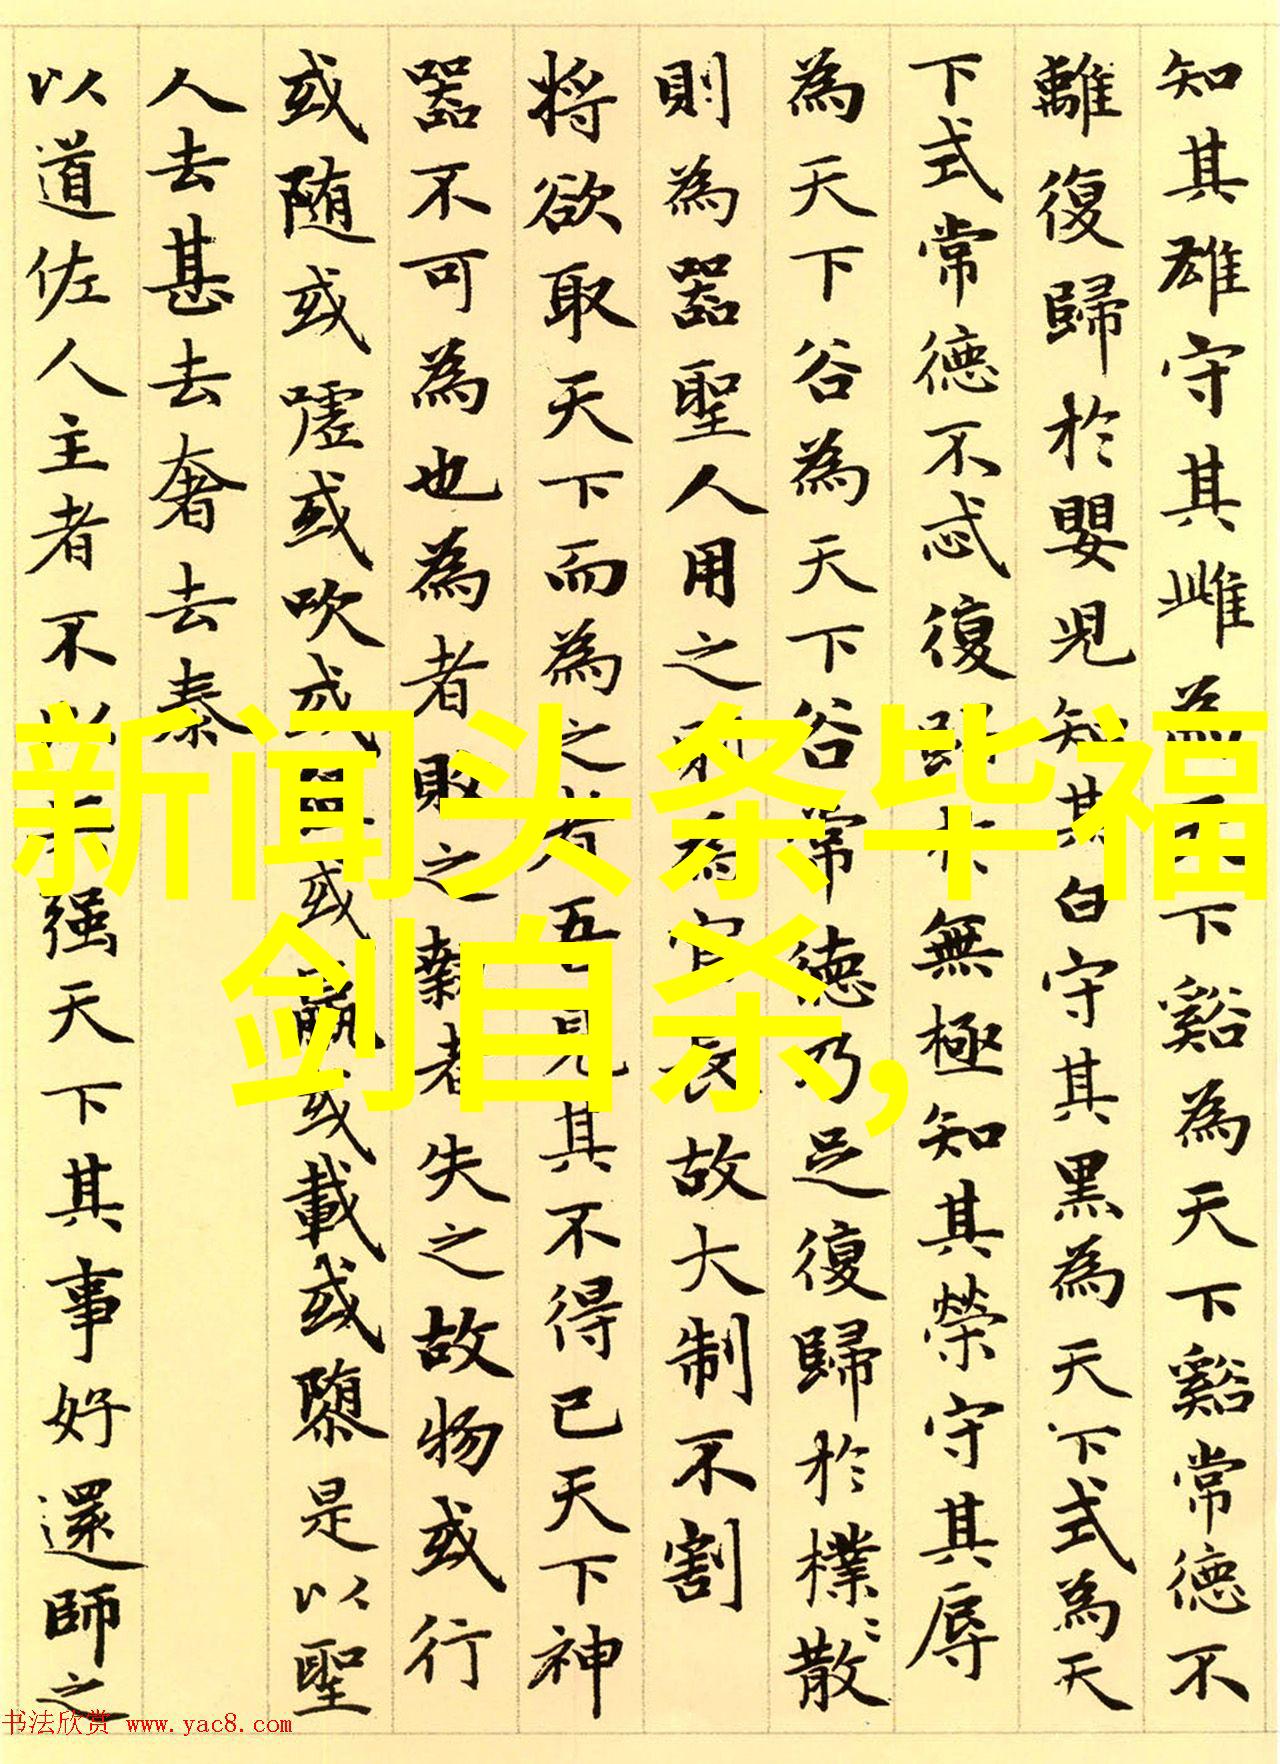 知其雄守其雌為天下谿為天下谿常德不
離復歸於嬰兒知其白守其黑為天下式為天
下式常德不忒復歸於無極知其榮守其辱
為天下谷為天下谷常德乃足復歸於樸〻散
則為器聖人用之則為官長故大制不割
将欲取天下而為之者吾見其不得已天下神
器不可為也為者敗之執者失之故物或行
或随或嘘或吹或或羸或載或隳是以聖
人去甚去奢去泰
以道佐人主者不以兵强天下其事好還師之
新闻头条毕福
剑自杀,
书法欣赏 www.yac8.com